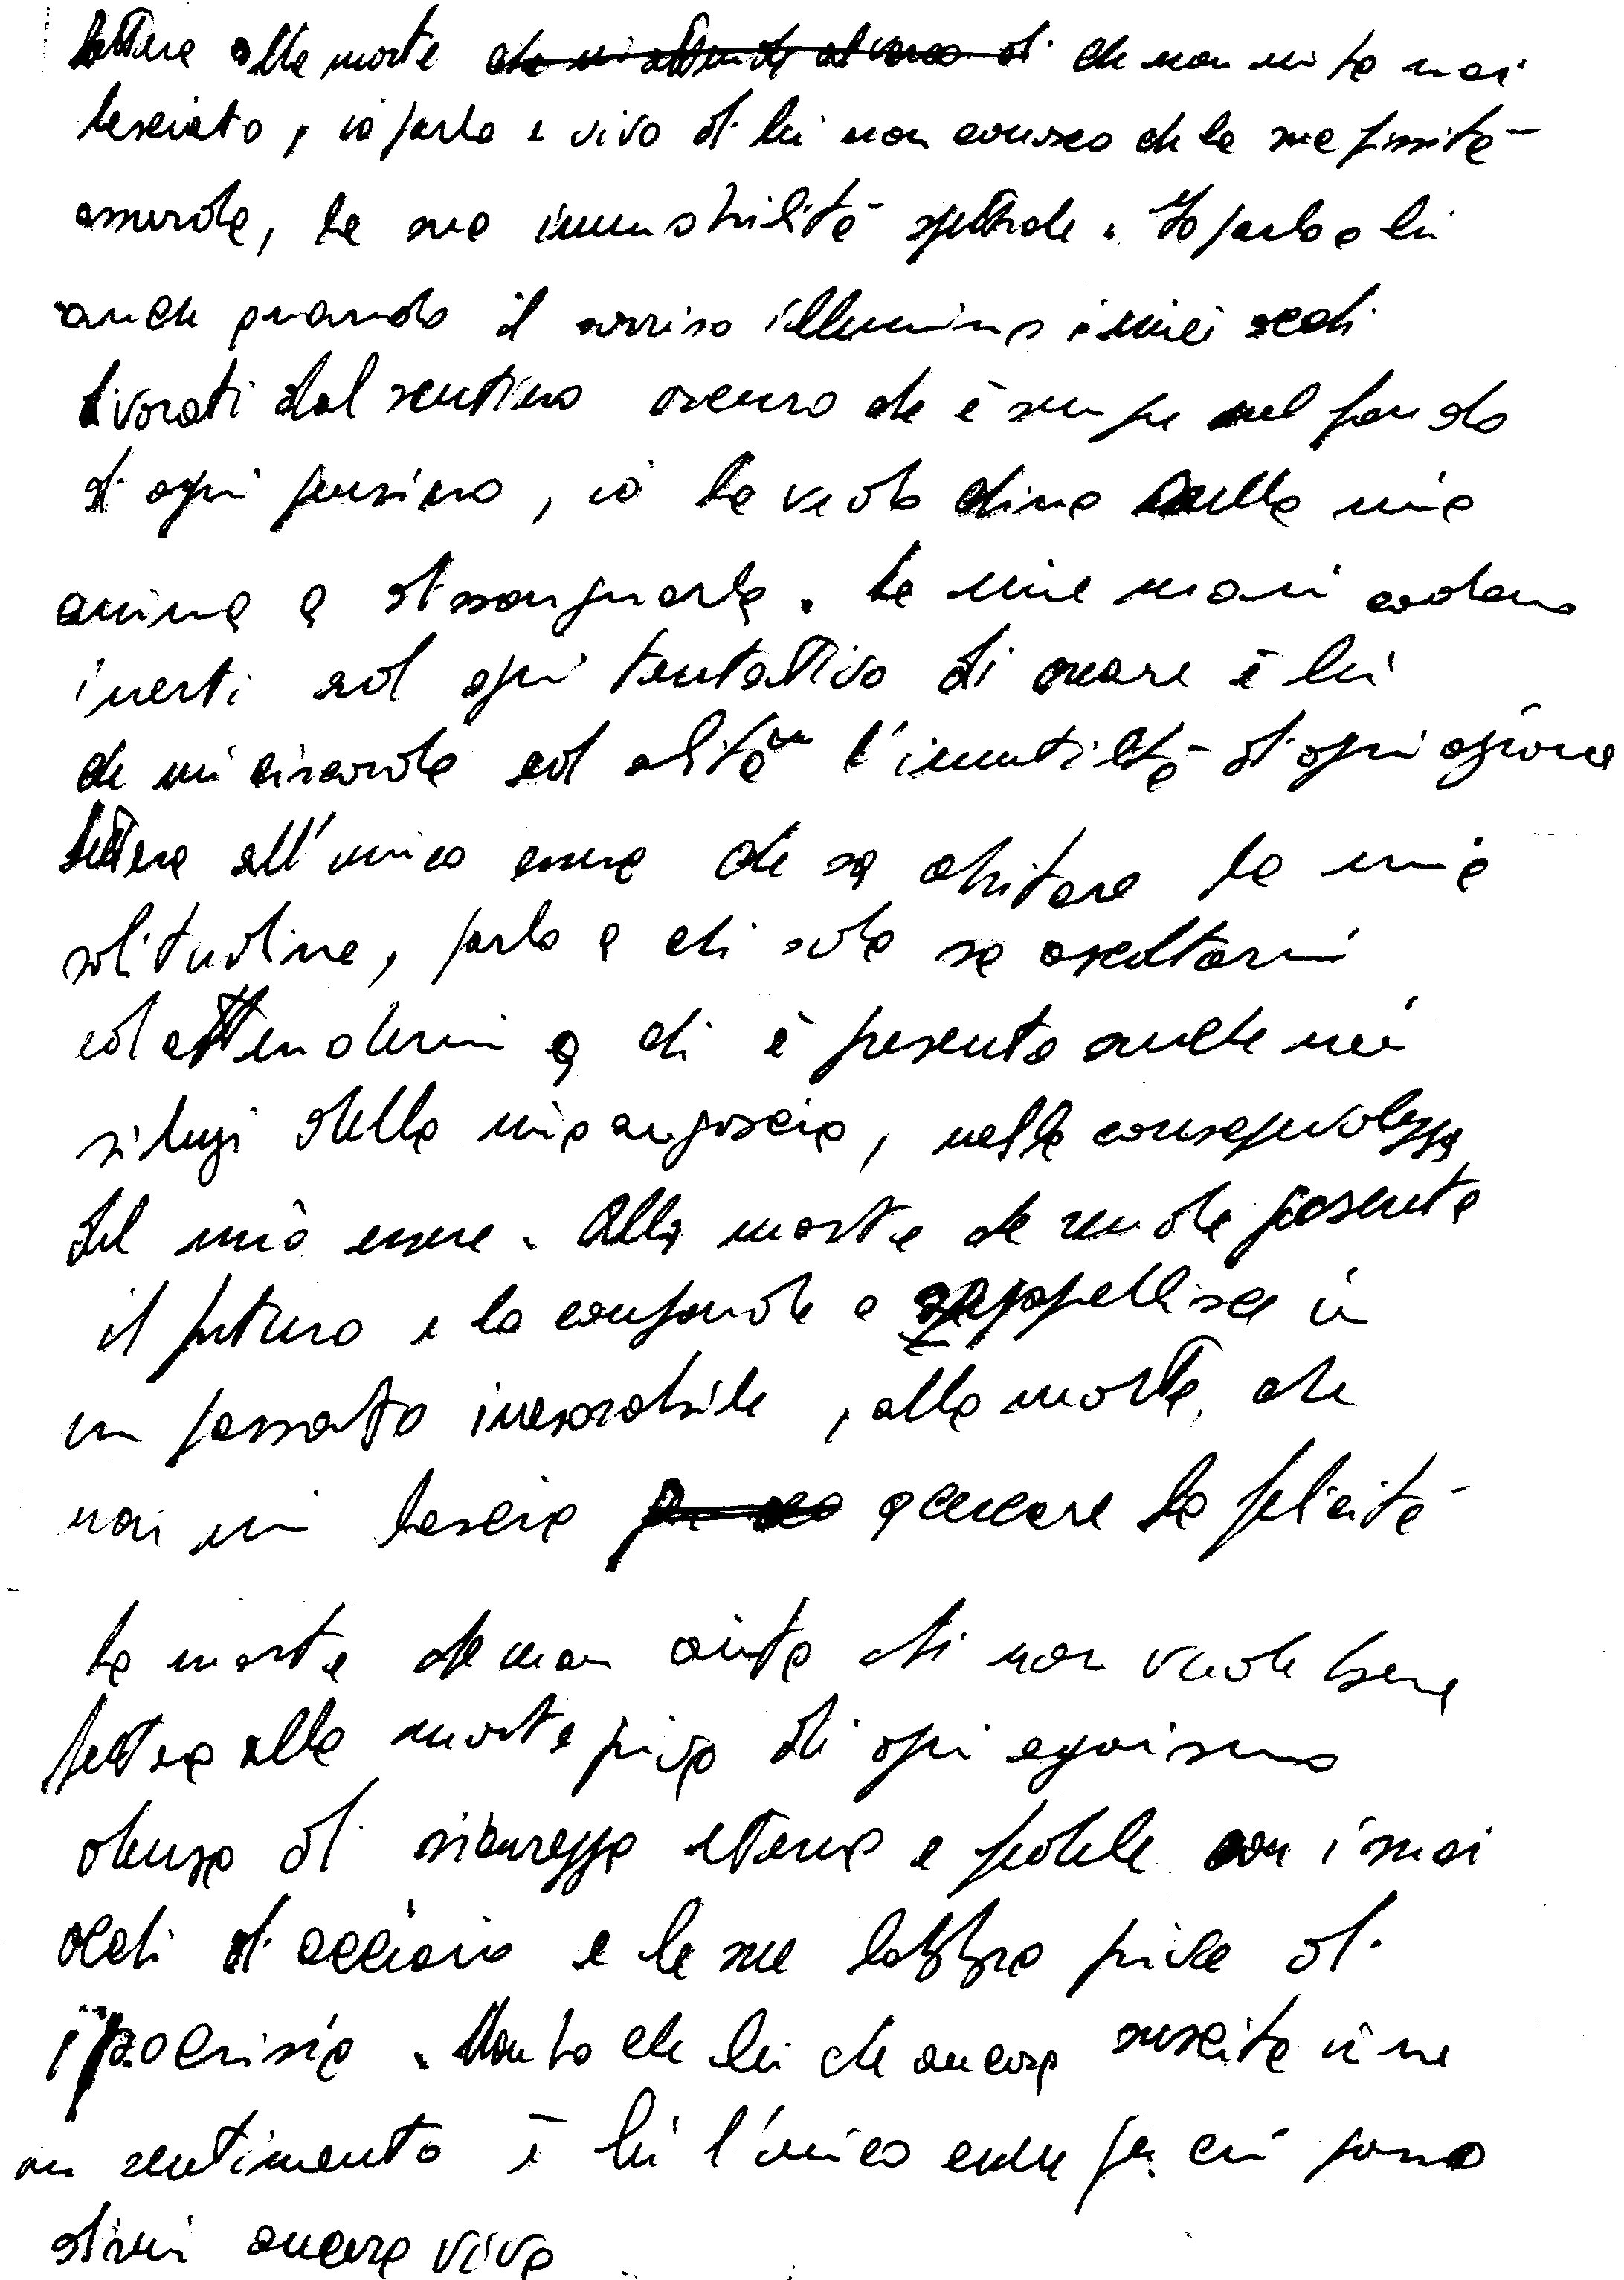 lettera alla morte che non mi ha mai
lasciato, io parlo e vivo di lei non conosco che la sua fissità
assurda, la sua immobilità spettrale. Io parlo a lei
anche quando il sorriso illumina i miei occhi
divorati dal sentimento oscuro che è sempre nel fondo
di ogni pensiero, io la vedo china sulla mia
anima a dissanguarla. Le mie mani cadono
inerti ad ogni tentativo di creare è lei
che mi circonda ed l'inutilità di ogni azione
lettera all'unico essere che sa abitare la mia
solitudine, parlo a chi sola sa ascoltarmi
ed attendermi a chi è presente nei
silenzi della mia angoscia, nella consapevolezza
del mio essere. Alla morte che rende presente
il futuro e lo confonde e seppellisce in
un passato inesorabile, alla morte, che
mai mi lascia a cercare la felicità
La morte che non aiuta chi non vuole bene
lettera alla morte priva di ogni egoismo
densa di sicurezza eterna e fedele con i suoi
occhi di acciaio e le sue labbra prive di
ipocrisia. Non ho che lei che ancora suscita in me
un sentimento è lei l'unico essere per cui posso
dirmi ancora viva